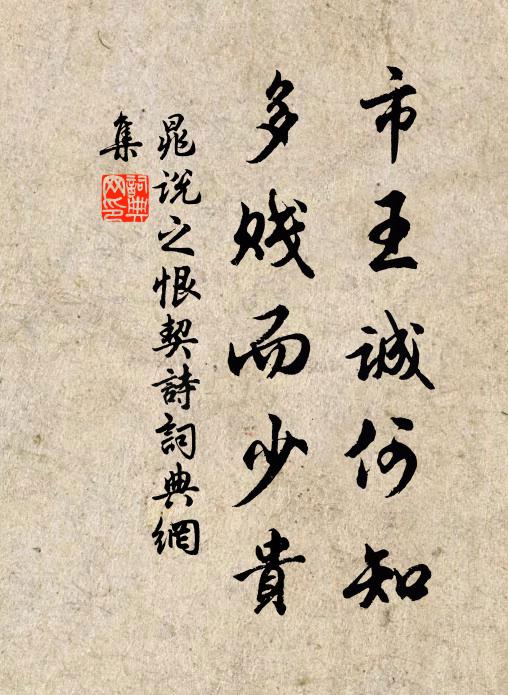 市王诚何知
多贱而少貴
晁说之恨契詩詞典網
集
詞典
网印